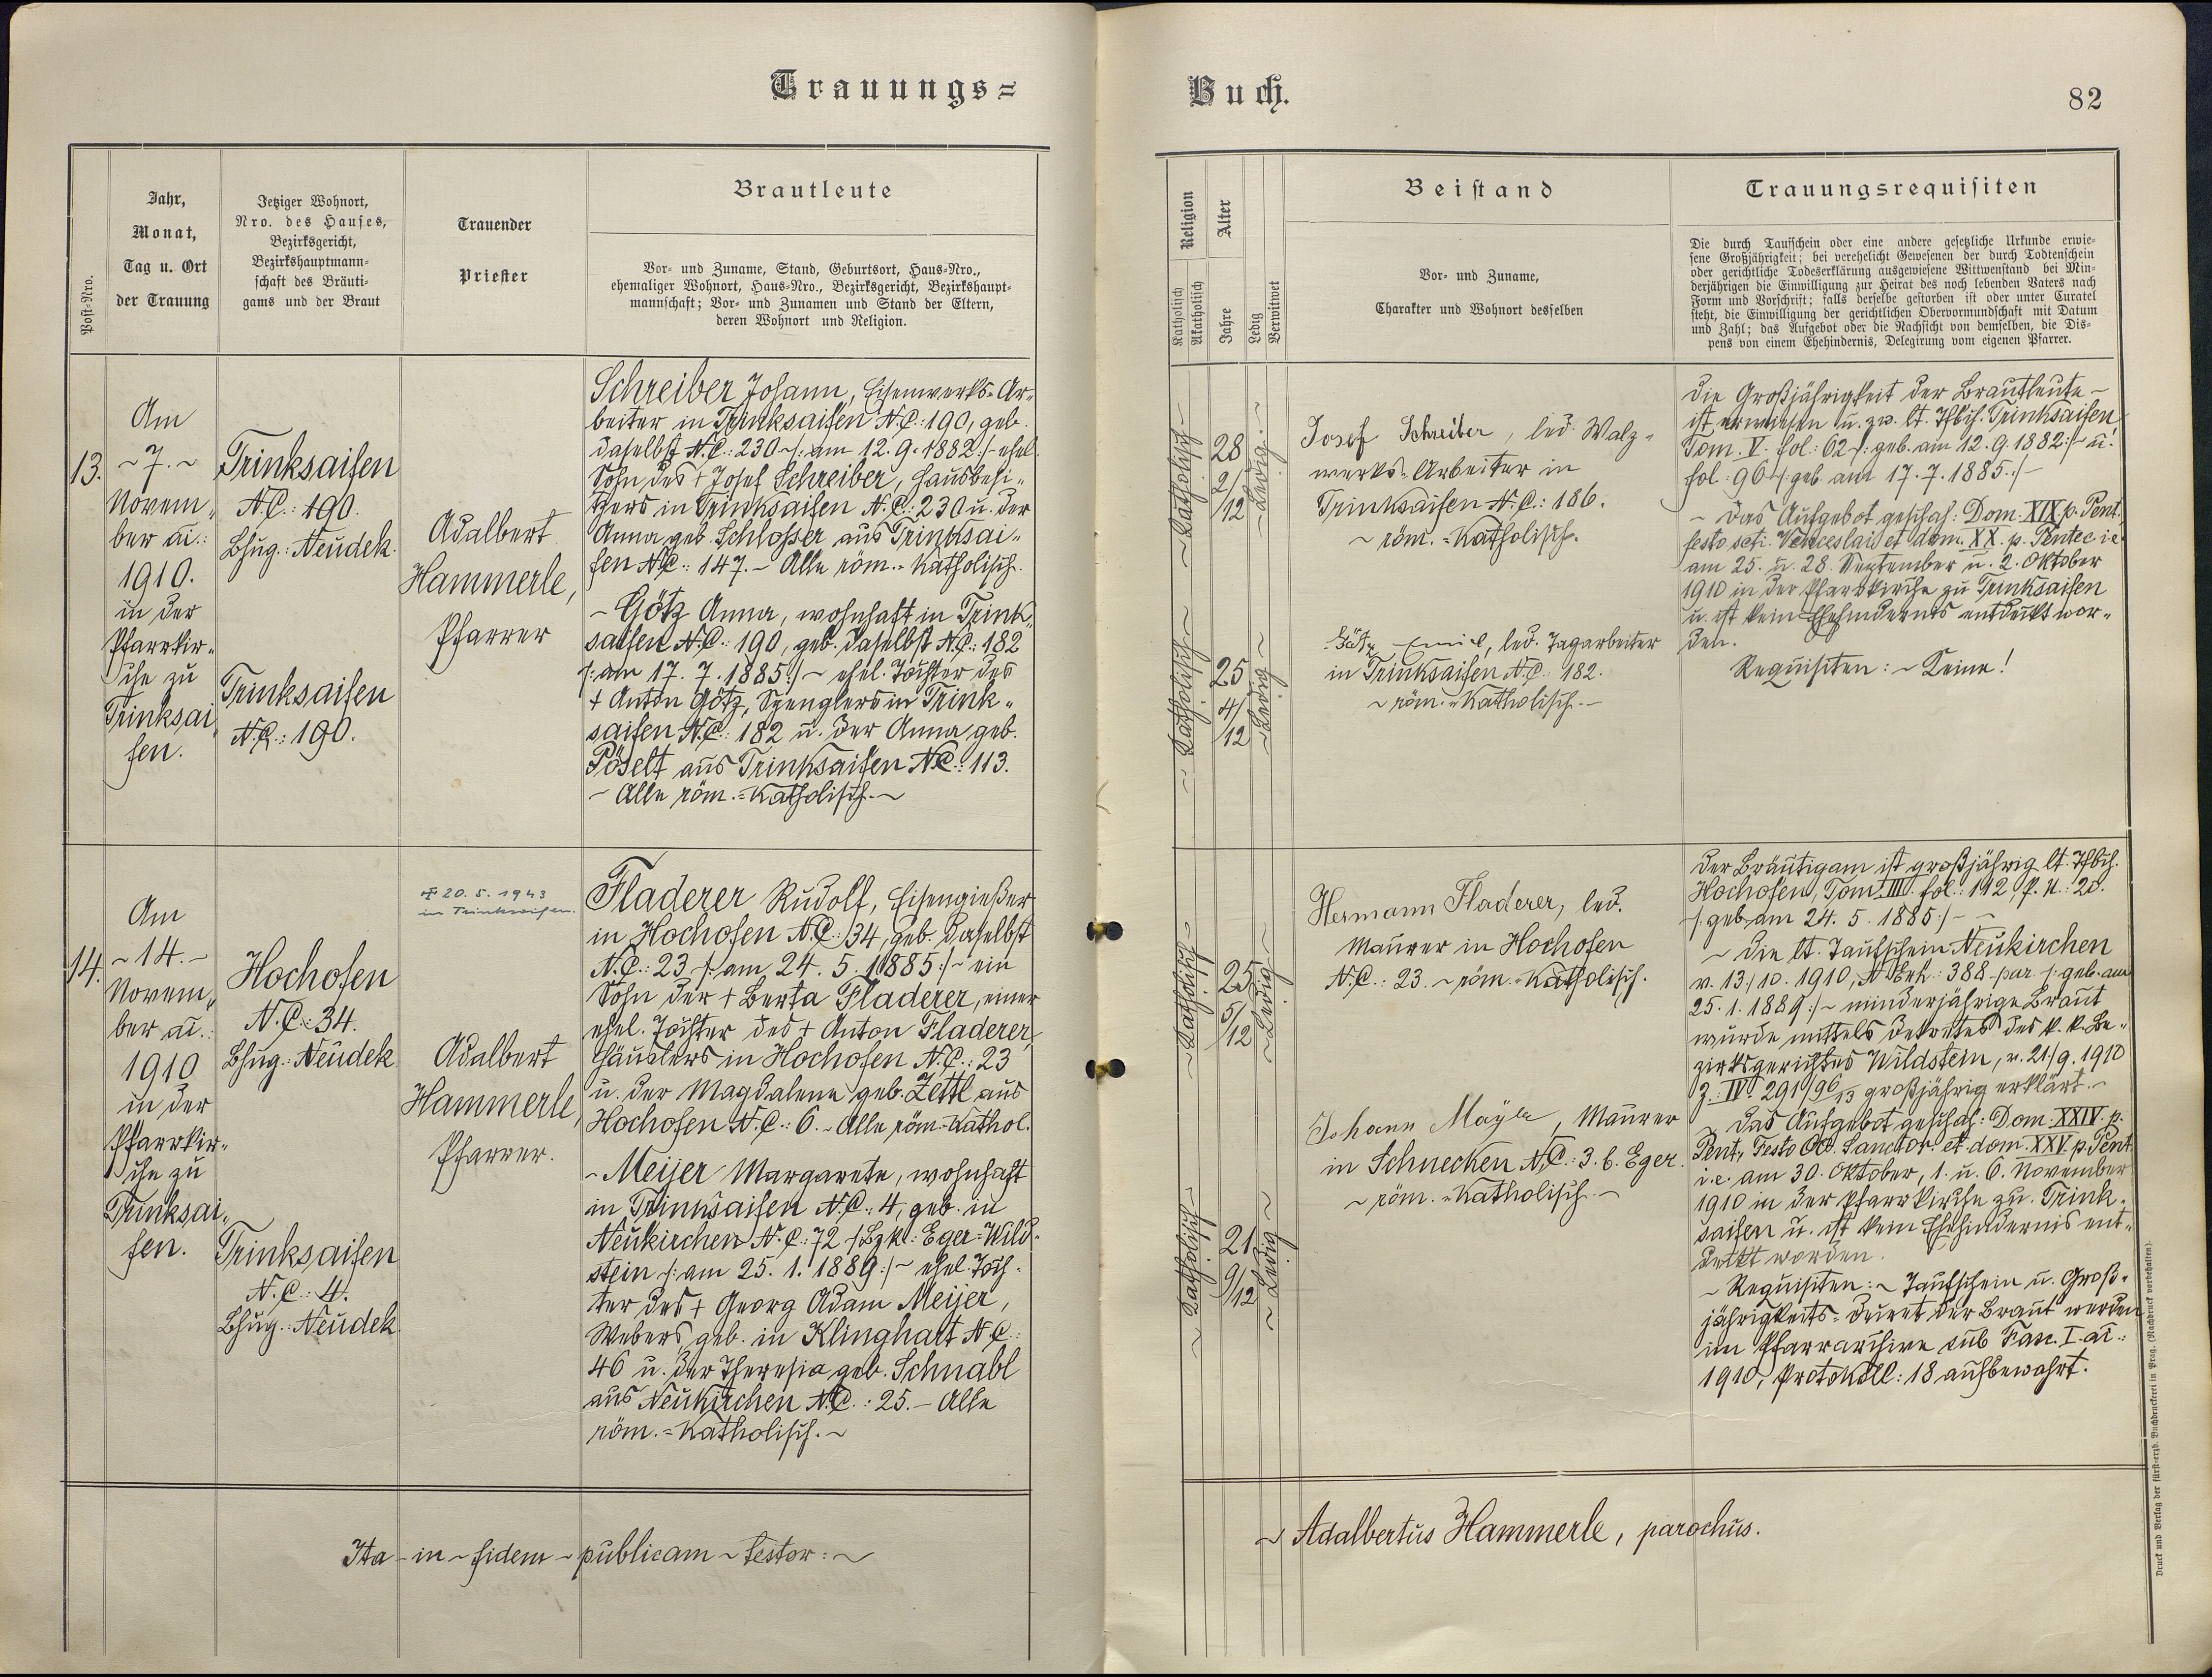 Trauungs=
Buch.
82
Post-Nro.
Jahr,
Monat,
Tag u. Ort
der Trauung
Jetziger Wohnort,
Nro. des Hauses,
Bezirksgericht,
Bezirkshauptmann-
schaft des Bräuti-
gams und der Braut
Trauender
Priester
Brautleute
Vor- und Zuname, Stand, Geburtsort, Haus-Nro.,
ehemaliger Wohnort, Haus-Nro., Bezirksgericht, Bezirkshaupt-
mannschaft; Vor- und Zunamen und Stand der Eltern,
deren Wohnort und Religion.
Religion
Katholisch
Akatholisch
Alter
Jahre
Ledig
Verwitwet
Beistand
Vor- und Zuname,
Charakter und Wohnort desselben
Trauungsrequisiten
Die durch Taufschein oder eine andere gesetzliche Urkunde erwie-
sene Großjährigkeit; bei verehelicht Gewesenen der durch Todtenschein
oder gerichtliche Todeserklärung ausgewiesene Wittwenstand bei Min-
derjährigen die Einwilligung zur Heirat des noch lebenden Vaters nach
Form und Vorschrift; falls derselbe gestorben ist oder unter Curatel
steht, die Einwilligung der gerichtlichen Obervormundschaft mit Datum
und Zahl; das Aufgebot oder die Nachsicht von demselben, die Dis-
pens von einem Ehehindernis, Delegirung vom eigenen Pfarrer.
13.
Am
~ 7. ~
Novem„
ber ai.:
1910.
in der
Pfarrkir„
che zu
Trinksai„
fen.
Trinksaifen
N.C.: 190.
Bhug.: Neudek.
Trinksaifen
N.C.: 190.
Adalbert
Hammerle,
Pfarrer
Schreiber Johann, Eisenwerks=Ar„
beiter in Trinksaifen N.C.: 190, geb.
daselbst N.C.: 230 ~/: am 12. 9. 1882 :/~ ehel.
Sohn des + Josef Schreiber, Hausbesi„
tzers in Trinksaifen N.C.: 230 u. der
Anna geb. Schlosser aus Trinksai„
fen N.C.: 147. ~ Alle röm.=Katholisch.
~ Götz Anna, wohnhaft in Trink„
saifen N.C.: 190, geb. daselbst N.C.: 182
/: am 17. 7. 1885 :/~ ehel. Tochter des
+ Anton Götz, Spenglers in Trink„
saifen N.C.: 182 u. der Anna geb.
Pöselt aus Trinksaifen N.C.: 113.
~ Alle röm.=Katholisch. ~
~ Katholisch ~
28
2/
/12
~ Ledig. ~
Josef Schreiber, led. Walz„
werks=Arbeiter in
Trinksaifen N.C.: 186.
~ röm.=Katholisch.
~ Katholisch ~
25
4/
/12
~ Ledig ~
Götz Emil, led. Tagarbeiter
in Trinksaifen N.C.: 182.
~ röm.=Katholisch. ~
Die Großjährigkeit der Brautleute ~
ist erwiesen u. zw. lt. Tfbch. Trinksaifen
Tom. V. fol.: 62 /: geb. am 12. 9. 1882 :/~ u.
fol.: 96 /: geb. am 17. 7. 1885 :/~
~ Das Aufgebot geschah: Dom. XIX p. Pent.,
festo scti. Venceslai et dom. XX. p. Pentec i.e.
am 25. u. 28. September u. 2. Oktober
1910 in der Pfarrkirche zu Trinksaifen
u. ist kein Ehehindernis entdeckt wor„
den.
Requisiten: ~ Keine!
14.
Am
~ 14. ~
Novem„
ber ai.:
1910
in der
Pfarrkir„
che zu
Trinksai„
fen.
Hochofen
N.C.: 34.
Bhug.: Neudek
Trinksaifen
N.C.: 4.
Bhug.: Neudek.
✠ 20. 5. 1943
in Trinkseifen.
Adalbert
Hammerle,
Pfarrer.
Fladerer Rudolf, Eisengießer
in Hochofen N.C.: 34, geb. daselbst
N.C.: 23 /: am 24. 5. 1885 :/~ ein
Sohn der + Berta Fladerer, einer
ehel. Tochter des + Anton Fladerer,
Häuslers in Hochofen N.C.: 23
u. der Magdalena geb. Zettl aus
Hochofen N.C.: 6. ~ Alle röm.=Kathol.
~ Meijer Margarete, wohnhaft
in Trinksaifen N.C.: 4, geb. in
Neukirchen N.C.: 72 /Bzk.: Eger=Wild„
stein /: am 25. 1. 1889 :/~ ehel. Toch„
ter des + Georg Adam Meijer,
Webers, geb. in Klinghart N.C.:
46 u. der Theresia geb. Schnabl
aus Neukirchen N.C.: 25. ~ Alle
röm.=Katholisch. ~
~ Katholisch ~
25
5/
/12
~ Ledig ~
Hermann Fladerer, led.
Maurer in Hochofen
N.C.: 23. ~ röm.=Katholisch.
~ Katholisch ~
21
9/
/12
~ Ledig ~
Johann Mayer, Maurer
in Schnecken N.C.: 3. b. Eger.
~ röm.=Katholisch. ~
Der Bräutigam ist großjährig lt. Tfbch.
Hochofen, Tom. III. fol.: 112, P. N.: 20.
/: geb. am 24. 5. 1885 :/~
~ Die lt. Taufschein Neukirchen
v. 13/10. 1910, N. Exh.: 388 par /: geb. am
25. 1. 1889 :/~ minderjährige Braut
wurde mittels Dekretes des k. k. Be„
zirksgerichtes Wildstein, v. 21/9. 1910
Z.: IV. 291/96/13 großjährig erklärt. ~
~ Das Aufgebot geschah: Dom. XXIV. p.
Pent., Festo OO. Sanctor. et dom. XXV. p. Pent.
i.e. am 30. Oktober, 1. u. 6. November
1910 in der Pfarrkirche zu Trink„
saifen u. ist kein Ehehindernis ent„
deckt worden.
~ Requisiten: ~ Taufschein u. Groß„
jährigkeits=Dekret der Braut werden
im Pfarrarchive sub Fasc. I. ai.:
1910, Protokoll: 18 aufbewahrt.
Ita ~ in ~ fidem ~ publicam ~ testor: ~
~ Adalbertus Hammerle, parochus.
Druck und Verlag der fürst-erzb. Buchdruckerei in Prag. (Nachdruck vorbehalten).